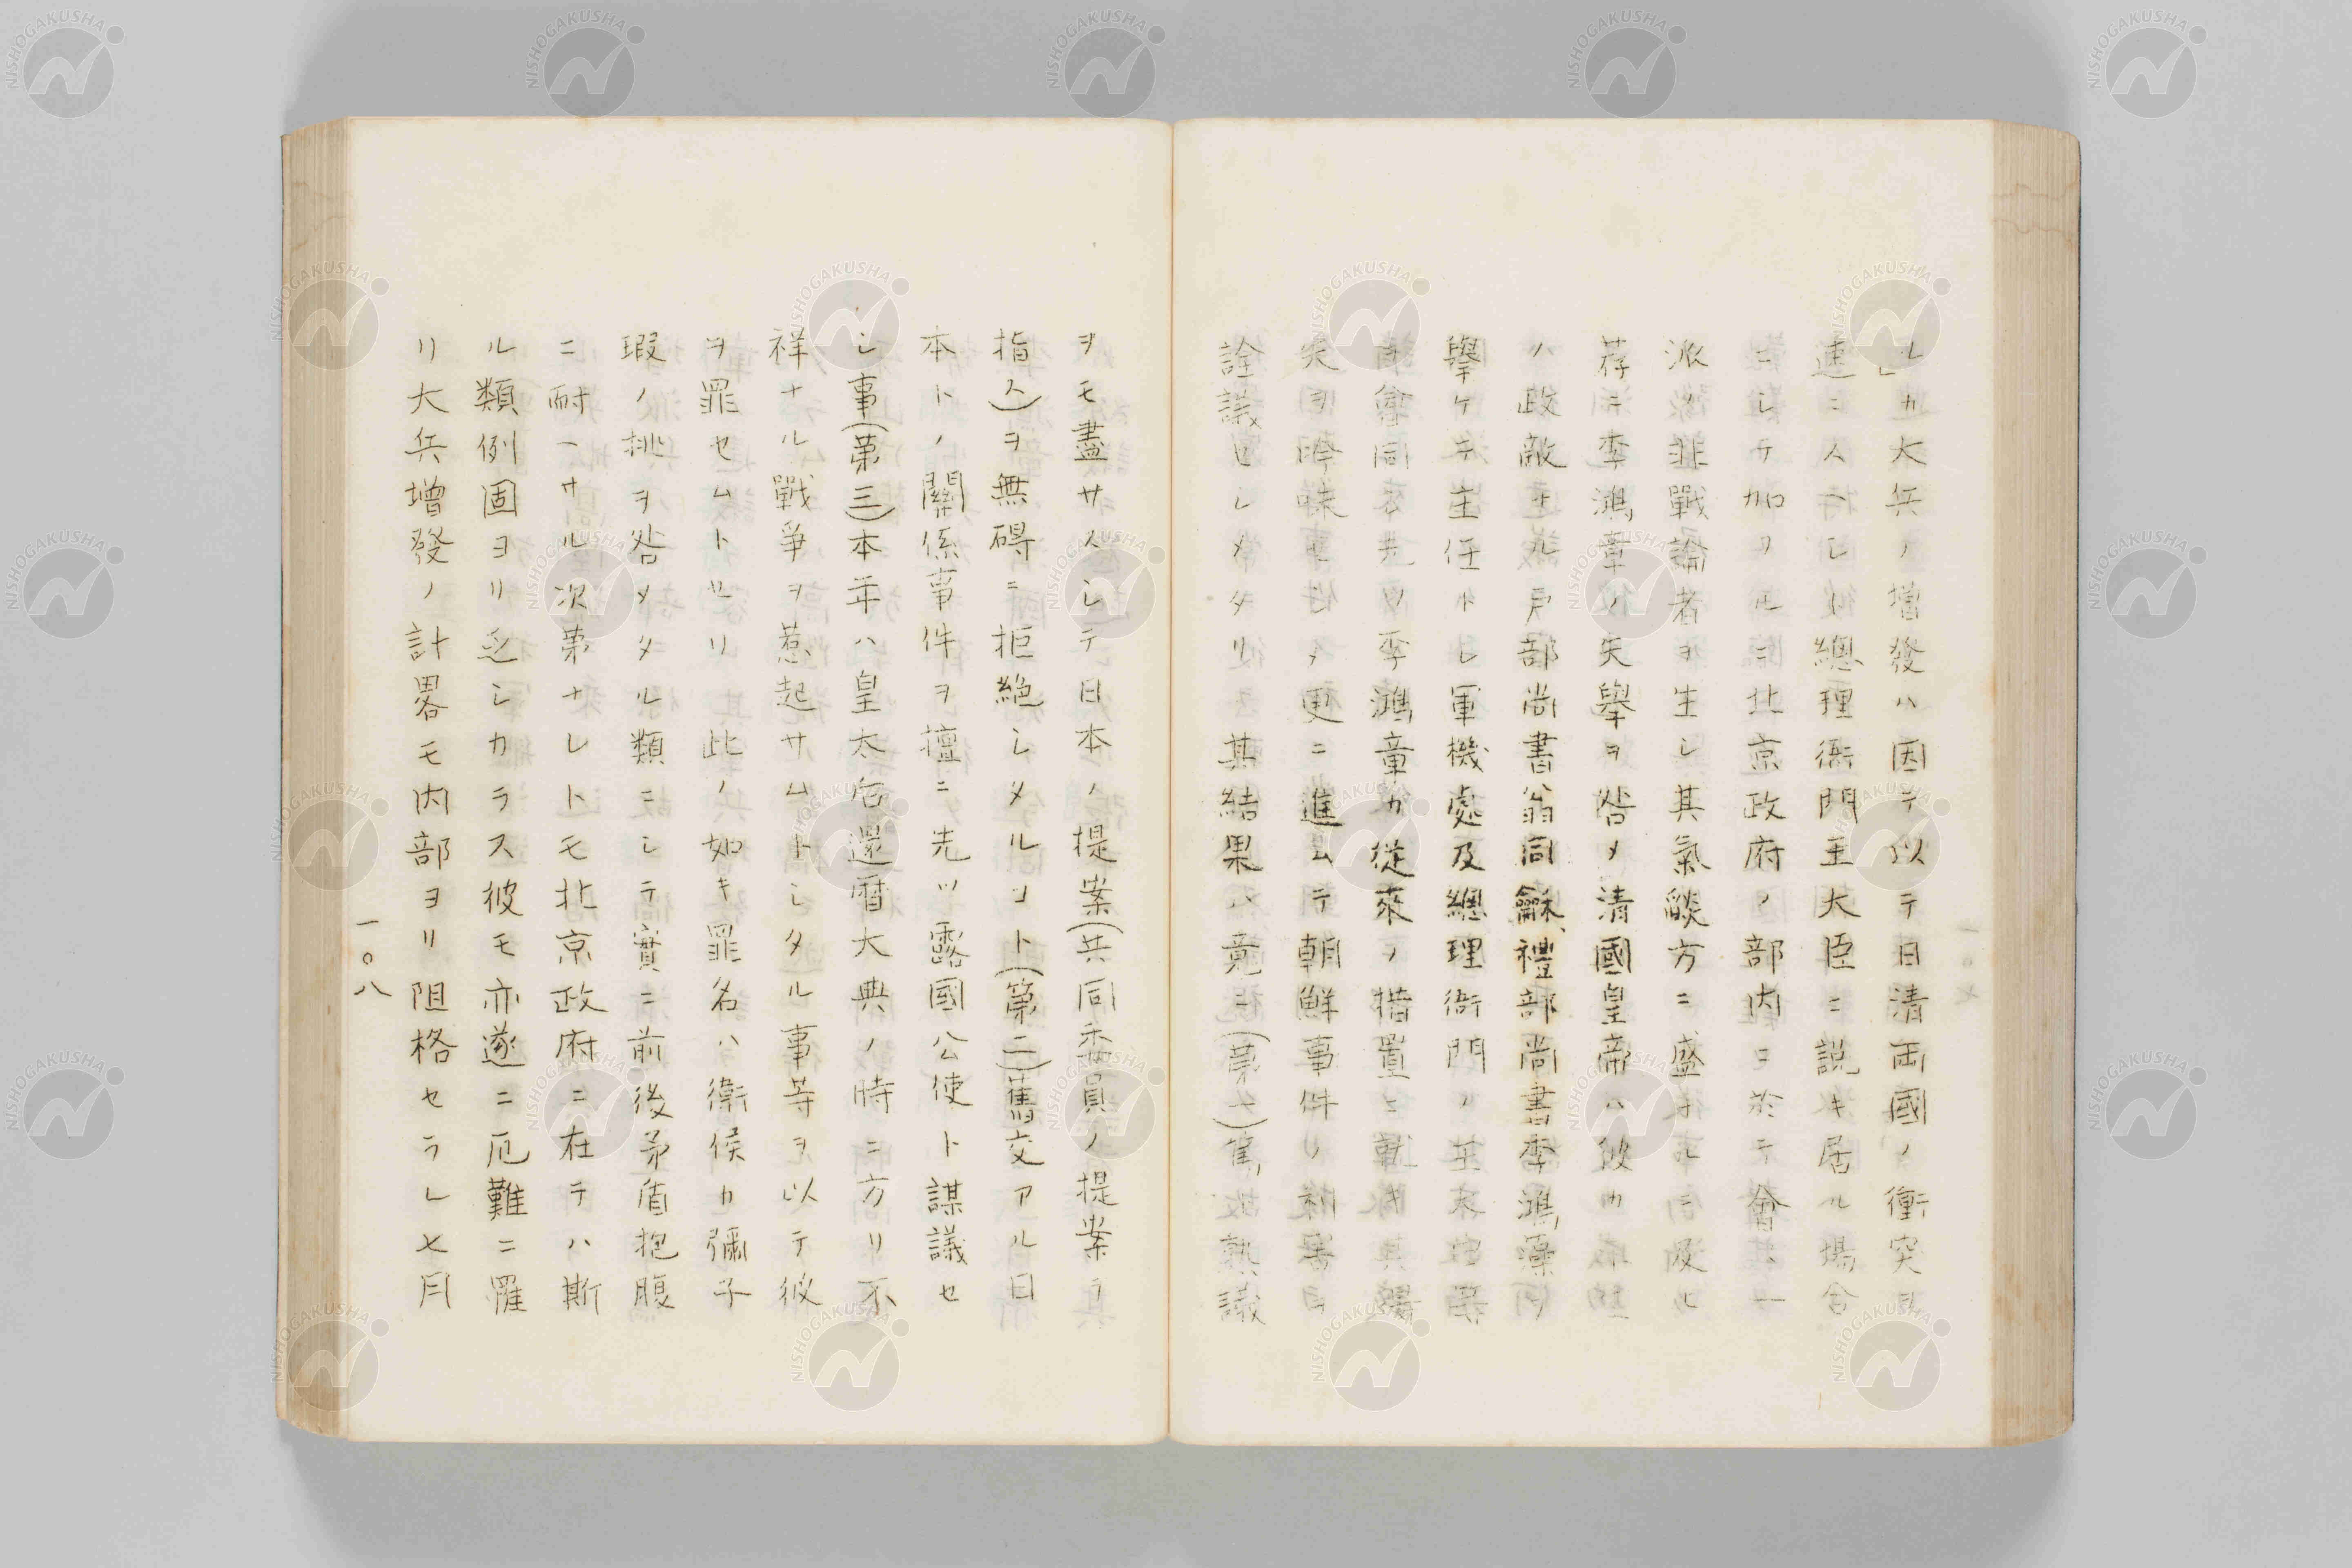 レカ大兵ノ増發ハ因テ以テ日清両國ノ衝突ヲ
速ニスヘシト總理衙門王大臣ニ説キ居ル場合
ニシテ加フルニ北京政府ノ部内ニ於テ會々一
派ノ非戰論者ヲ生シ其氣燄方ニ盛ナルニ及ヒ
荐ニ李鴻章ノ失擧ヲ咎メ清國皇帝ハ彼カ
ノ政敵ナル戸部尚書翁同龢禮部尚書李鴻藻ヲ
擧ケテ主任トシ軍機處及總理衙門ノ王大臣等
ト會同李鴻章カ從來ノ措置ニ就キ其
失ヲ吟味シ更ニ進ムテ朝鮮事件ノ
詮議セシメタリ其結果ハ竟ニ(第一)舊故熟議
ヲモ盡サスシテ日本ノ提案(共同委員ノ提案ヲ
指ス)ヲ無碍ニ拒絶シタルヿト(第二)舊交アル日
本トノ關係事件ヲ擅ニ先ツ露國公使ト謀議セ
シ事(第三)本年ハ皇太后還暦大典ノ時ニ方リ不
祥ナル戰爭ヲ惹起サムトシタル事等ヲ以テ彼
ヲ罪セムトセリ其此ノ如キ罪名ハ衛侯カ彌子
瑕ノ桃ヲ咎メタル類ニシテ實ニ前後矛盾抱腹
ニ耐ヘサル次第ナレトモ北京政府ニ在テハ斯
ル類例固ヨリ乏シカラス彼モ亦遂ニ厄難ニ罹
リ大兵增發ノ計畧モ内部ヨリ阻格セラレ七月
一〇八
NISHOGAKUSHA